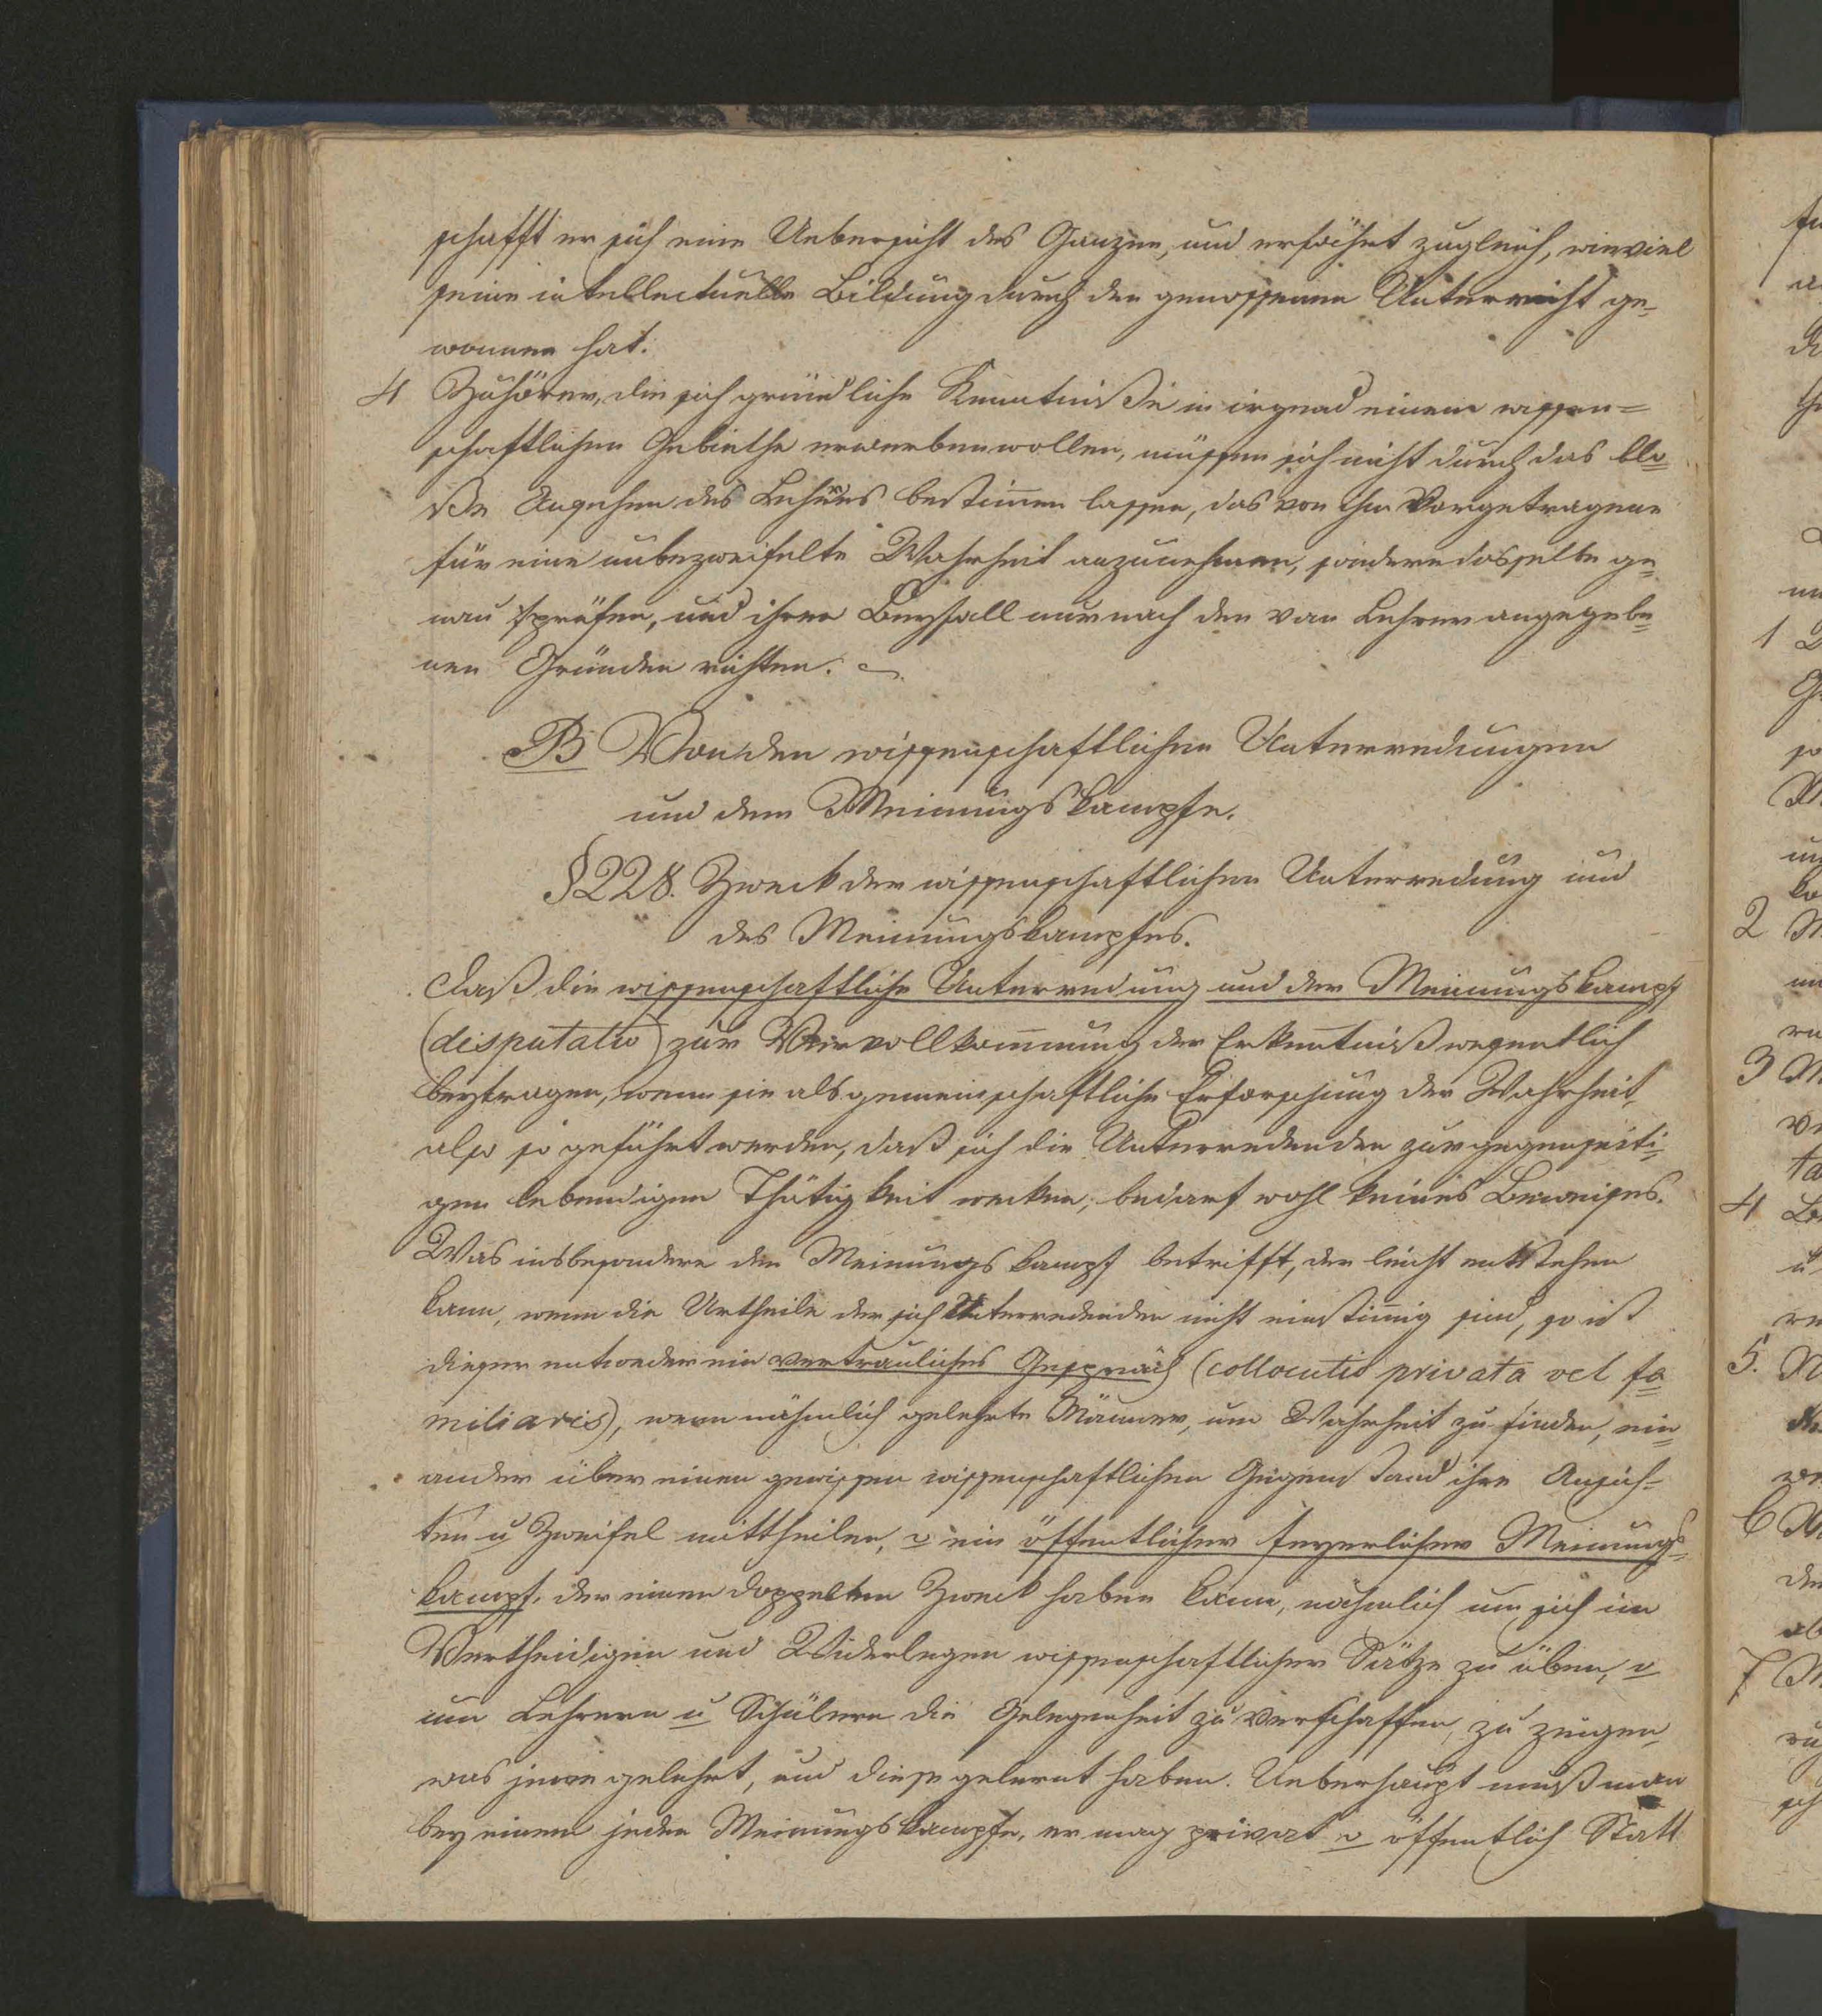 schafft er sich eine Uebersicht des Ganzen, und erfährt zugleich, wieviel
seine intellectuelle Bildung durch den genossenen Unterricht ge-
wonnen hat.
4 Zuhörer, die sich gründliche Kenntniße in irgend einem wissen=
schaftlichen Gebiethe erwerben wollen, müssen sich nicht durch das blo=
ße Ansehen des Lehrers bestim̅en lassen, das von ihm Vorgetragene
für eine unbezweifelte Wahrheit anzunehmen, sondern dasselbe ge=
nau prüfen, und ihren Beyfall nur nach den vom Lehrer angegebe=
nen Gründen richten.
B Von den wissenschaftlichen Unterredungen
und dem Meinungskampfe.
§ 228. Zweck der wissenschaftlichen Unterredung und
des Meinungskampfes.
Daß die wissenschaftliche Unterredung und der Meinungskampf
(disputatio) zur Vervollkom̅nung der Erkenntniß wesentlich
beytragen, wenn sie als gemeinschaftliche Erforschung der Wahrheit,
also so geführt werden, daß sich die Unterredenden zur gegenseiti=
gen lebendigen Thätigkeit wecken, bedarf wohl keines Beweises.
Was insbesondere den Meinungskampf betrifft, der leicht entstehen
kann, wenn die Urtheile der sich Unterredenden nicht einstim̅ig sind, so ist
dieser entweder ein vertrauliches Gespräch (collocutio privata vel fa=
miliaris), wenn nähmlich gelehrte Männer, um Wahrheit zu finden, ein=
ander über einen gewissen wissenschaftlichen Gegenstand ihre Ansich-
ten u Zweifel mittheilen, o ein öffentlicher feyerlicher Meinungs=
kampf, der einen doppelten Zweck haben kann, nähmlich um sich im
Vertheidigen und Widerlegen wissenschaftlicher Sätze zu üben, o
um Lehrern u Schülern die Gelegenheit zu verschaffen, zu zeigen,
was jene gelehrt, und diese gelernt haben. Ueberhaupt muß man
bey einem jeden Meinungskampfe, er mag privat o öffentlich Statt